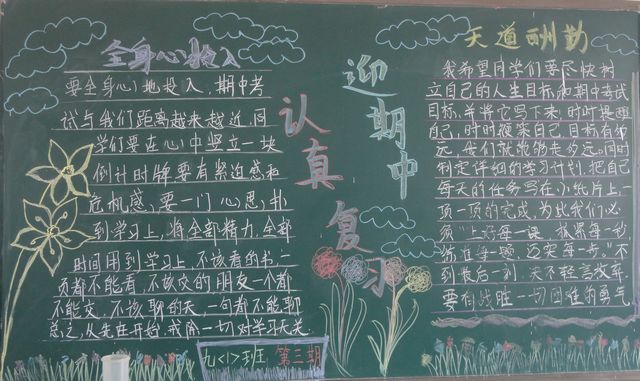 全身心投入
要全身心地投入,期中考
试与我们距离越来越近,同
学们要在心中竖立一块
倒计时牌,要有紧迫感和
危机感,要一门心思,扑
到学习上,将全部精力,全部
时间用到学习上,不该看的书一
页都不能看,不该交的朋友一个都
不能交,不该聊的天,一句都不能聊
总之,从先在开始,戒除一切对学习无关
迎期中
认真复习
九<1>班 第三期
天道酬勤
我希望同学们要尽快树
立自己的人生目标,和期中考试
目标,并将它写下来,时时提醒
自己,时时鞭策自己,目标有多
远,我们就能够走多远。同时
制定详细的学习计划,把自
每天的任务写在小纸片上,一
项一项的完成,为此我们必
须“上好每一课,抓紧每一秒
每一题,迈实每一步。”不
到最后一刻,天不轻言放弃,
要有战胜一切困难的勇气